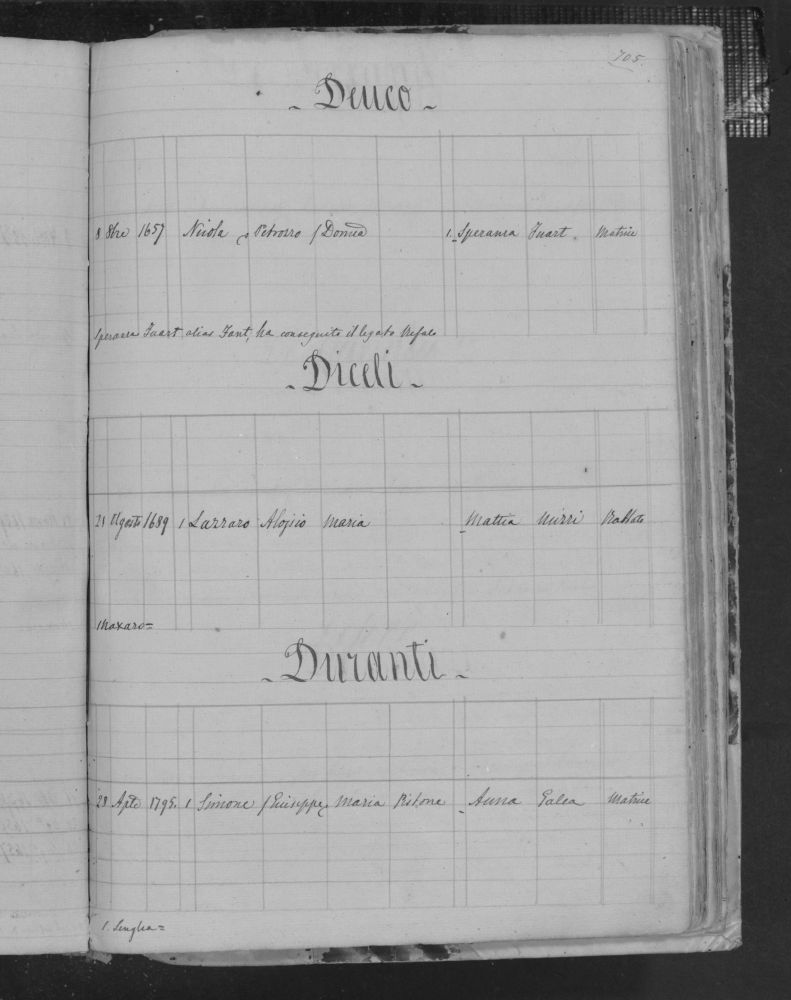 705.
- Deuco -
8 8bre 1657 Nicola e Petrosso / Donna 1. Speranza Fuart. Matrice
Speranza Fuart alias Fant, ha conseguito il legato Nefalo
- Diceli -
21 Agosto 1689 1 Lazzaro Alojsio Maria Mattia Mizzi Rabbato
1 Naxaro =
- Duranti -
28 Aple 1795. 1 Simone / Giuseppe, Maria Pistone Anna Galea Matrice
1. Senglea =